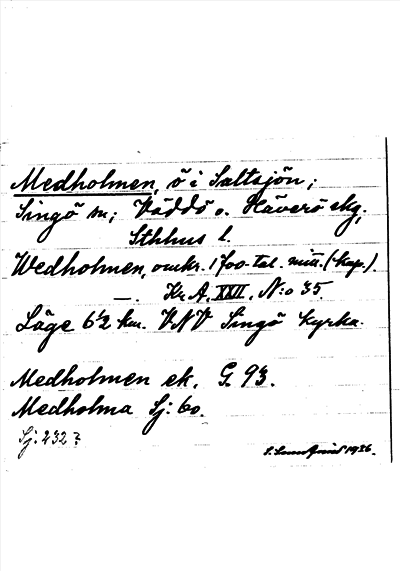 Medholmen, ö i Saltsjön;
Singö sn; Väddö o. Häverö skg,
Sthlms l.
Wedholmen, omkr. 1700-tal. mitt. (kop.)
—. Kr A, XXII, N:o 35.
Läge 6½ km. VNV Singö kyrka.
Medholmen ek. G. 93.
Medholma Sj: 60.
Sj: 232?
1936.